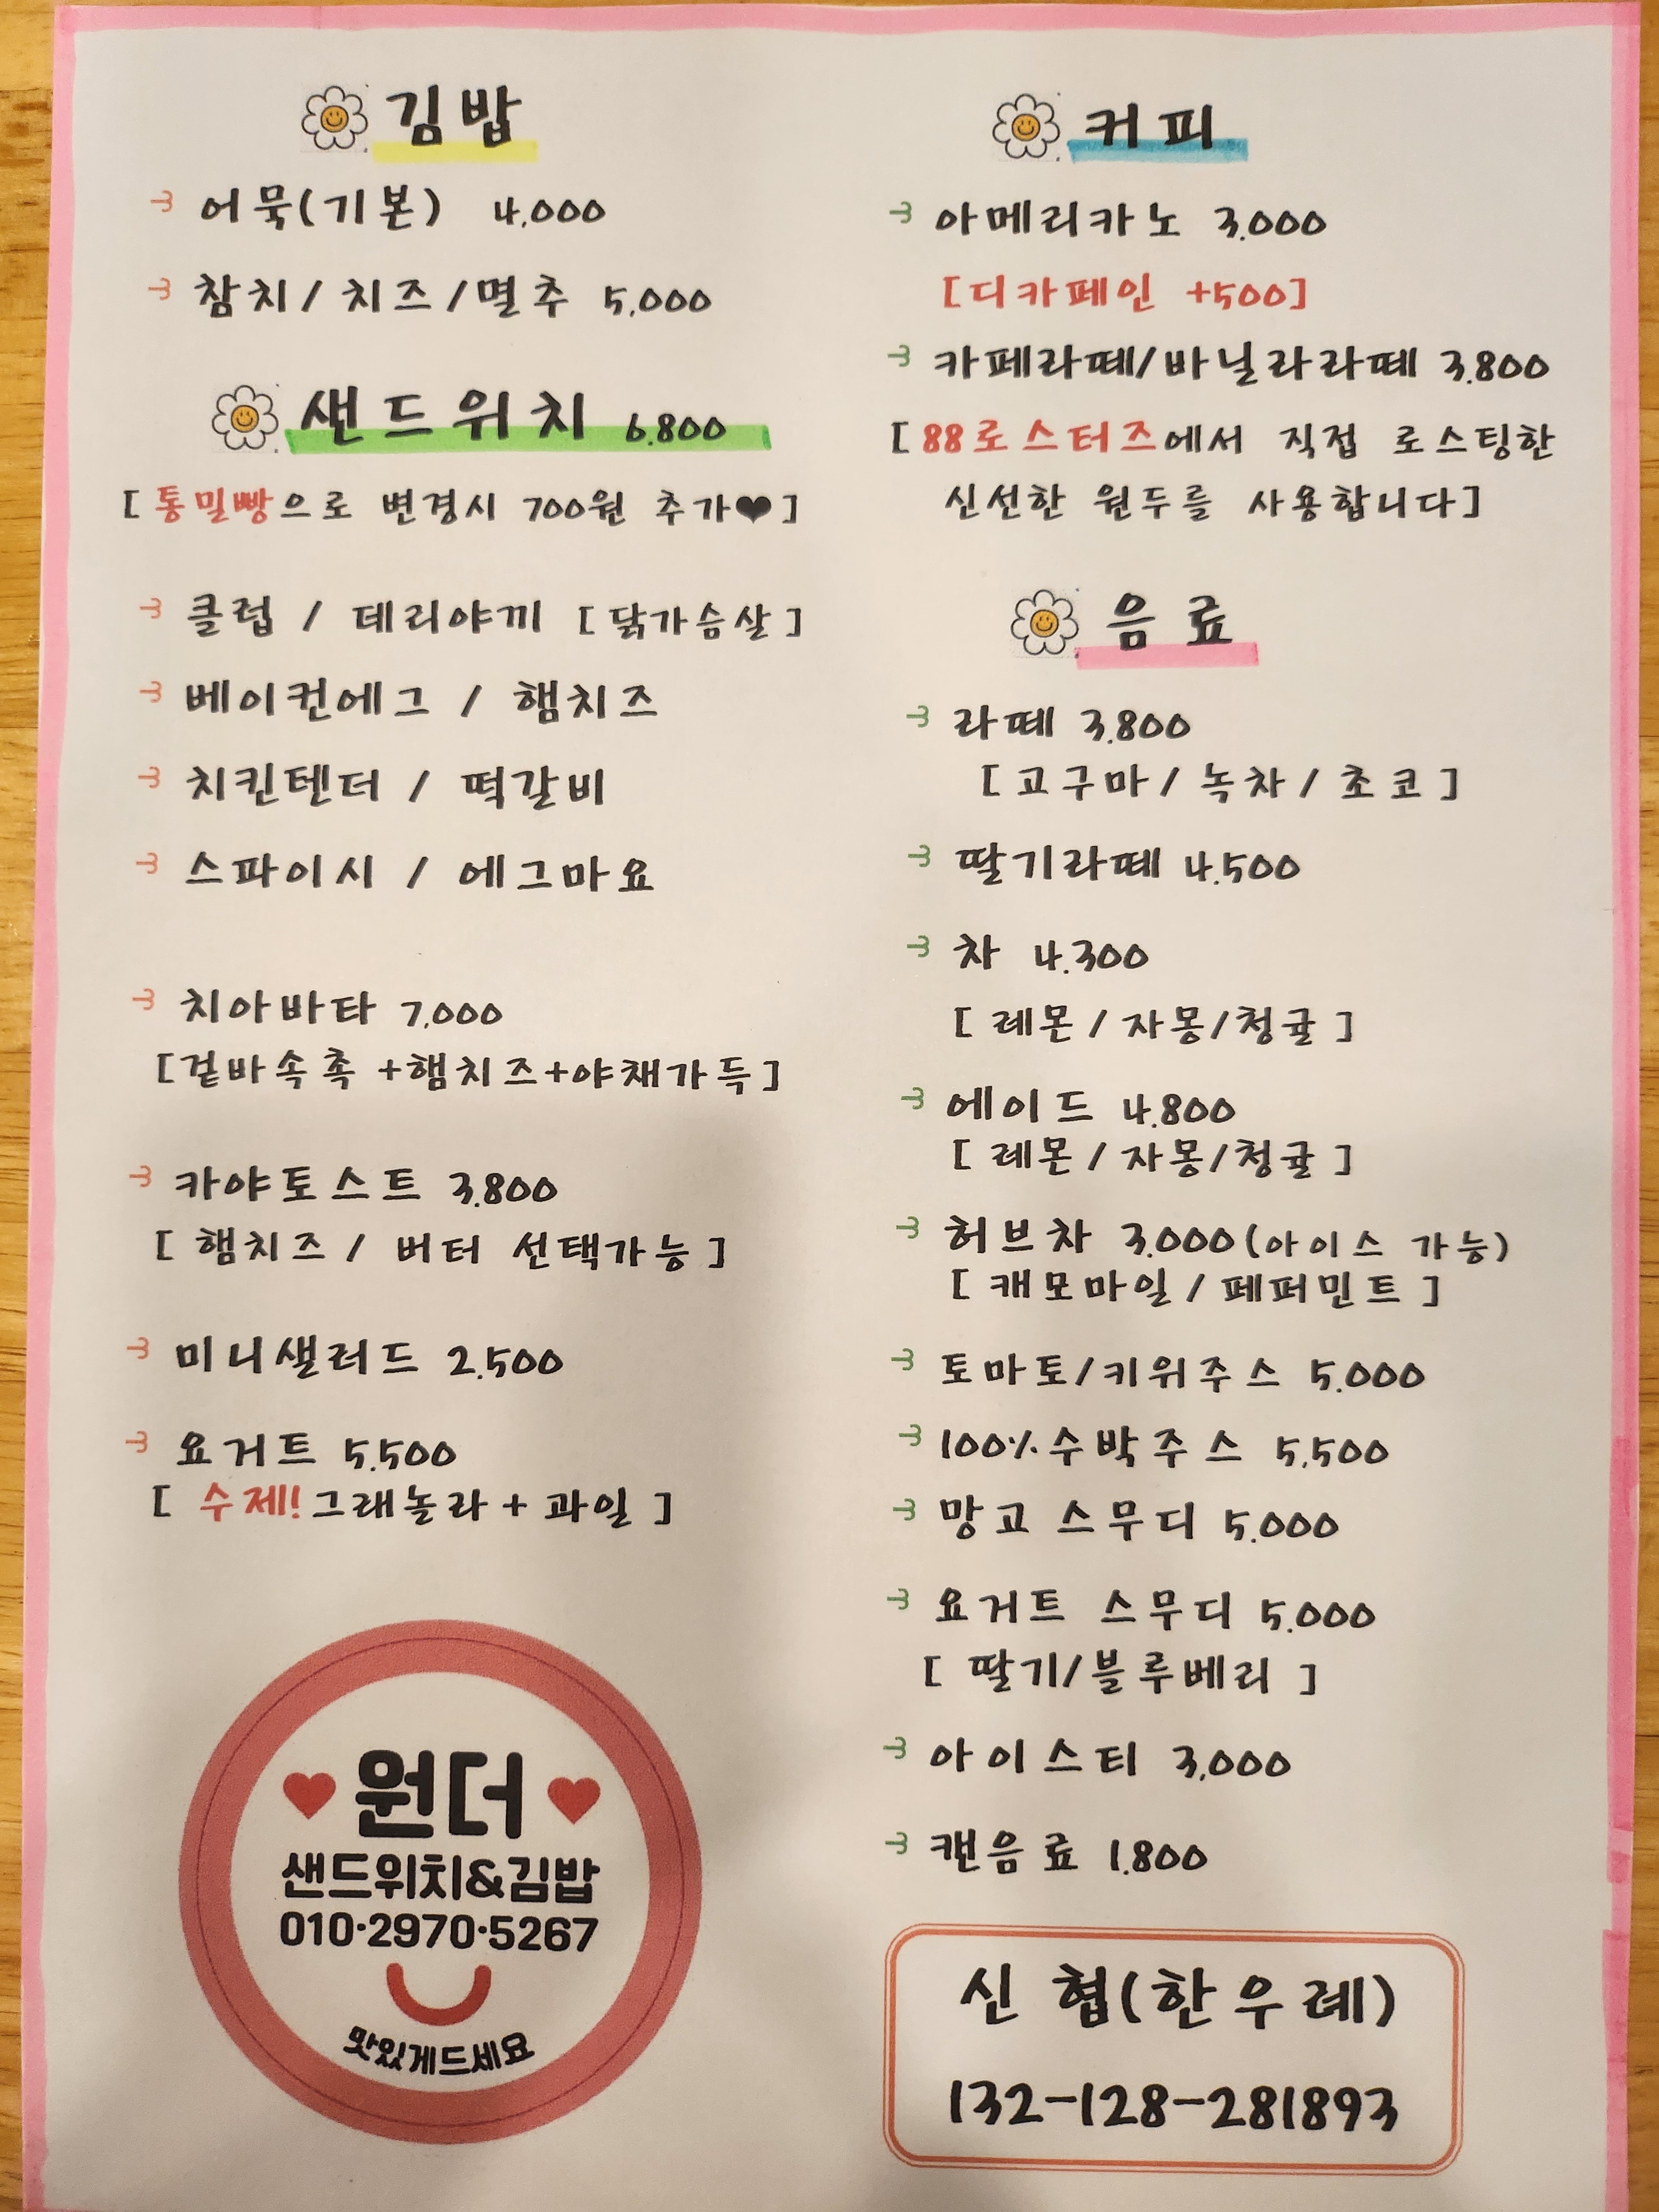 김밥
어묵(기본) 4,000
참치/치즈/멸추 5,000
샌드위치 6.800
[통밀빵으로 변경시 700원 추가♥]
클럽 / 데리야끼 [닭가슴살]
베이컨에그 / 햄치즈
치킨텐더 / 떡갈비
스파이시 / 에그마요
치아바타 7,000
[겉바속촉+햄치즈+야채가득]
카야토스트 3.800
[햄치즈 / 버터 선택가능]
미니샐러드 2.500
요거트 5.500
[수제! 그래놀라 + 과일]
원더
샌드위치&김밥
010·2970·5267
맛있게드세요
커피
아메리카노 3.000
[디카페인 +500]
카페라떼/바닐라라떼 3.800
[88로스터즈에서 직접 로스팅한
신선한 원두를 사용합니다]
음료
라떼 3.800
[고구마/녹차/초코]
딸기라떼 4.500
차 4.300
[레몬/자몽/청귤]
에이드 4.800
[레몬/자몽/청귤]
허브차 3.000(아이스 가능)
[캐모마일/페퍼민트]
토마토/키위주스 5.000
100%수박주스 5,500
망고 스무디 5.000
요거트 스무디 5.000
[딸기/블루베리]
아이스티 3,000
캔음료 1.800
신협(한우례)
132-128-281893